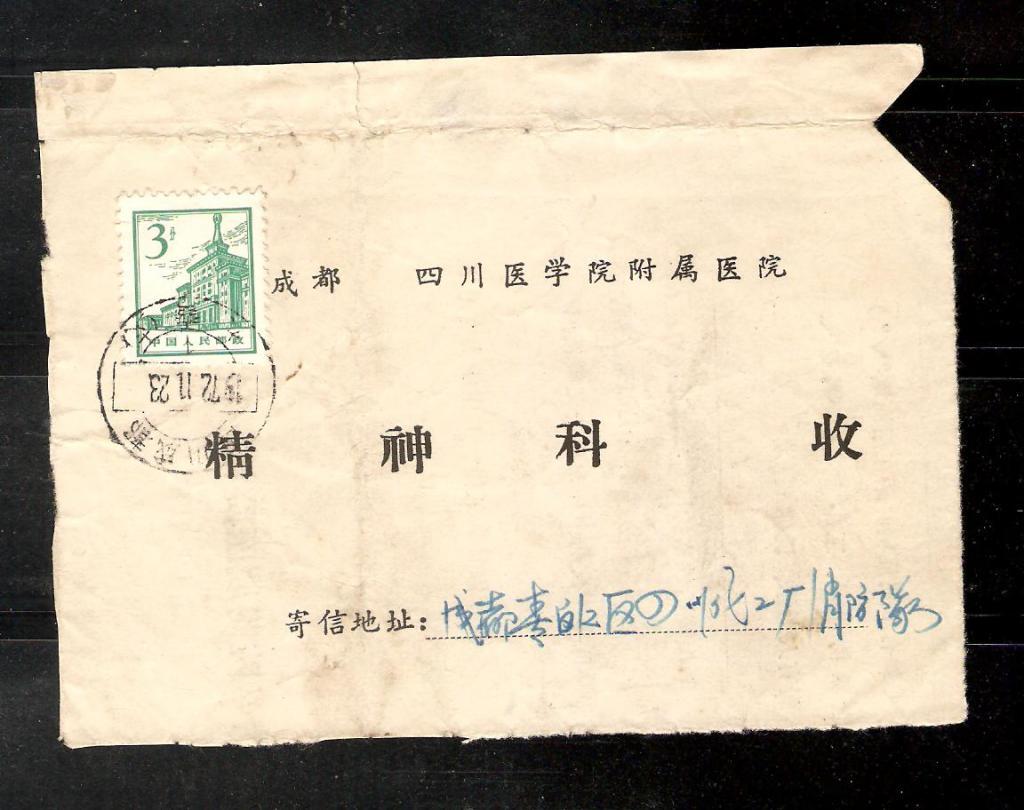 3分
中国人民邮政
1972.11.23
成都
成都 四川医学院附属医院
精神科 收
寄信地址：成都青白江区四川化工厂消防隊